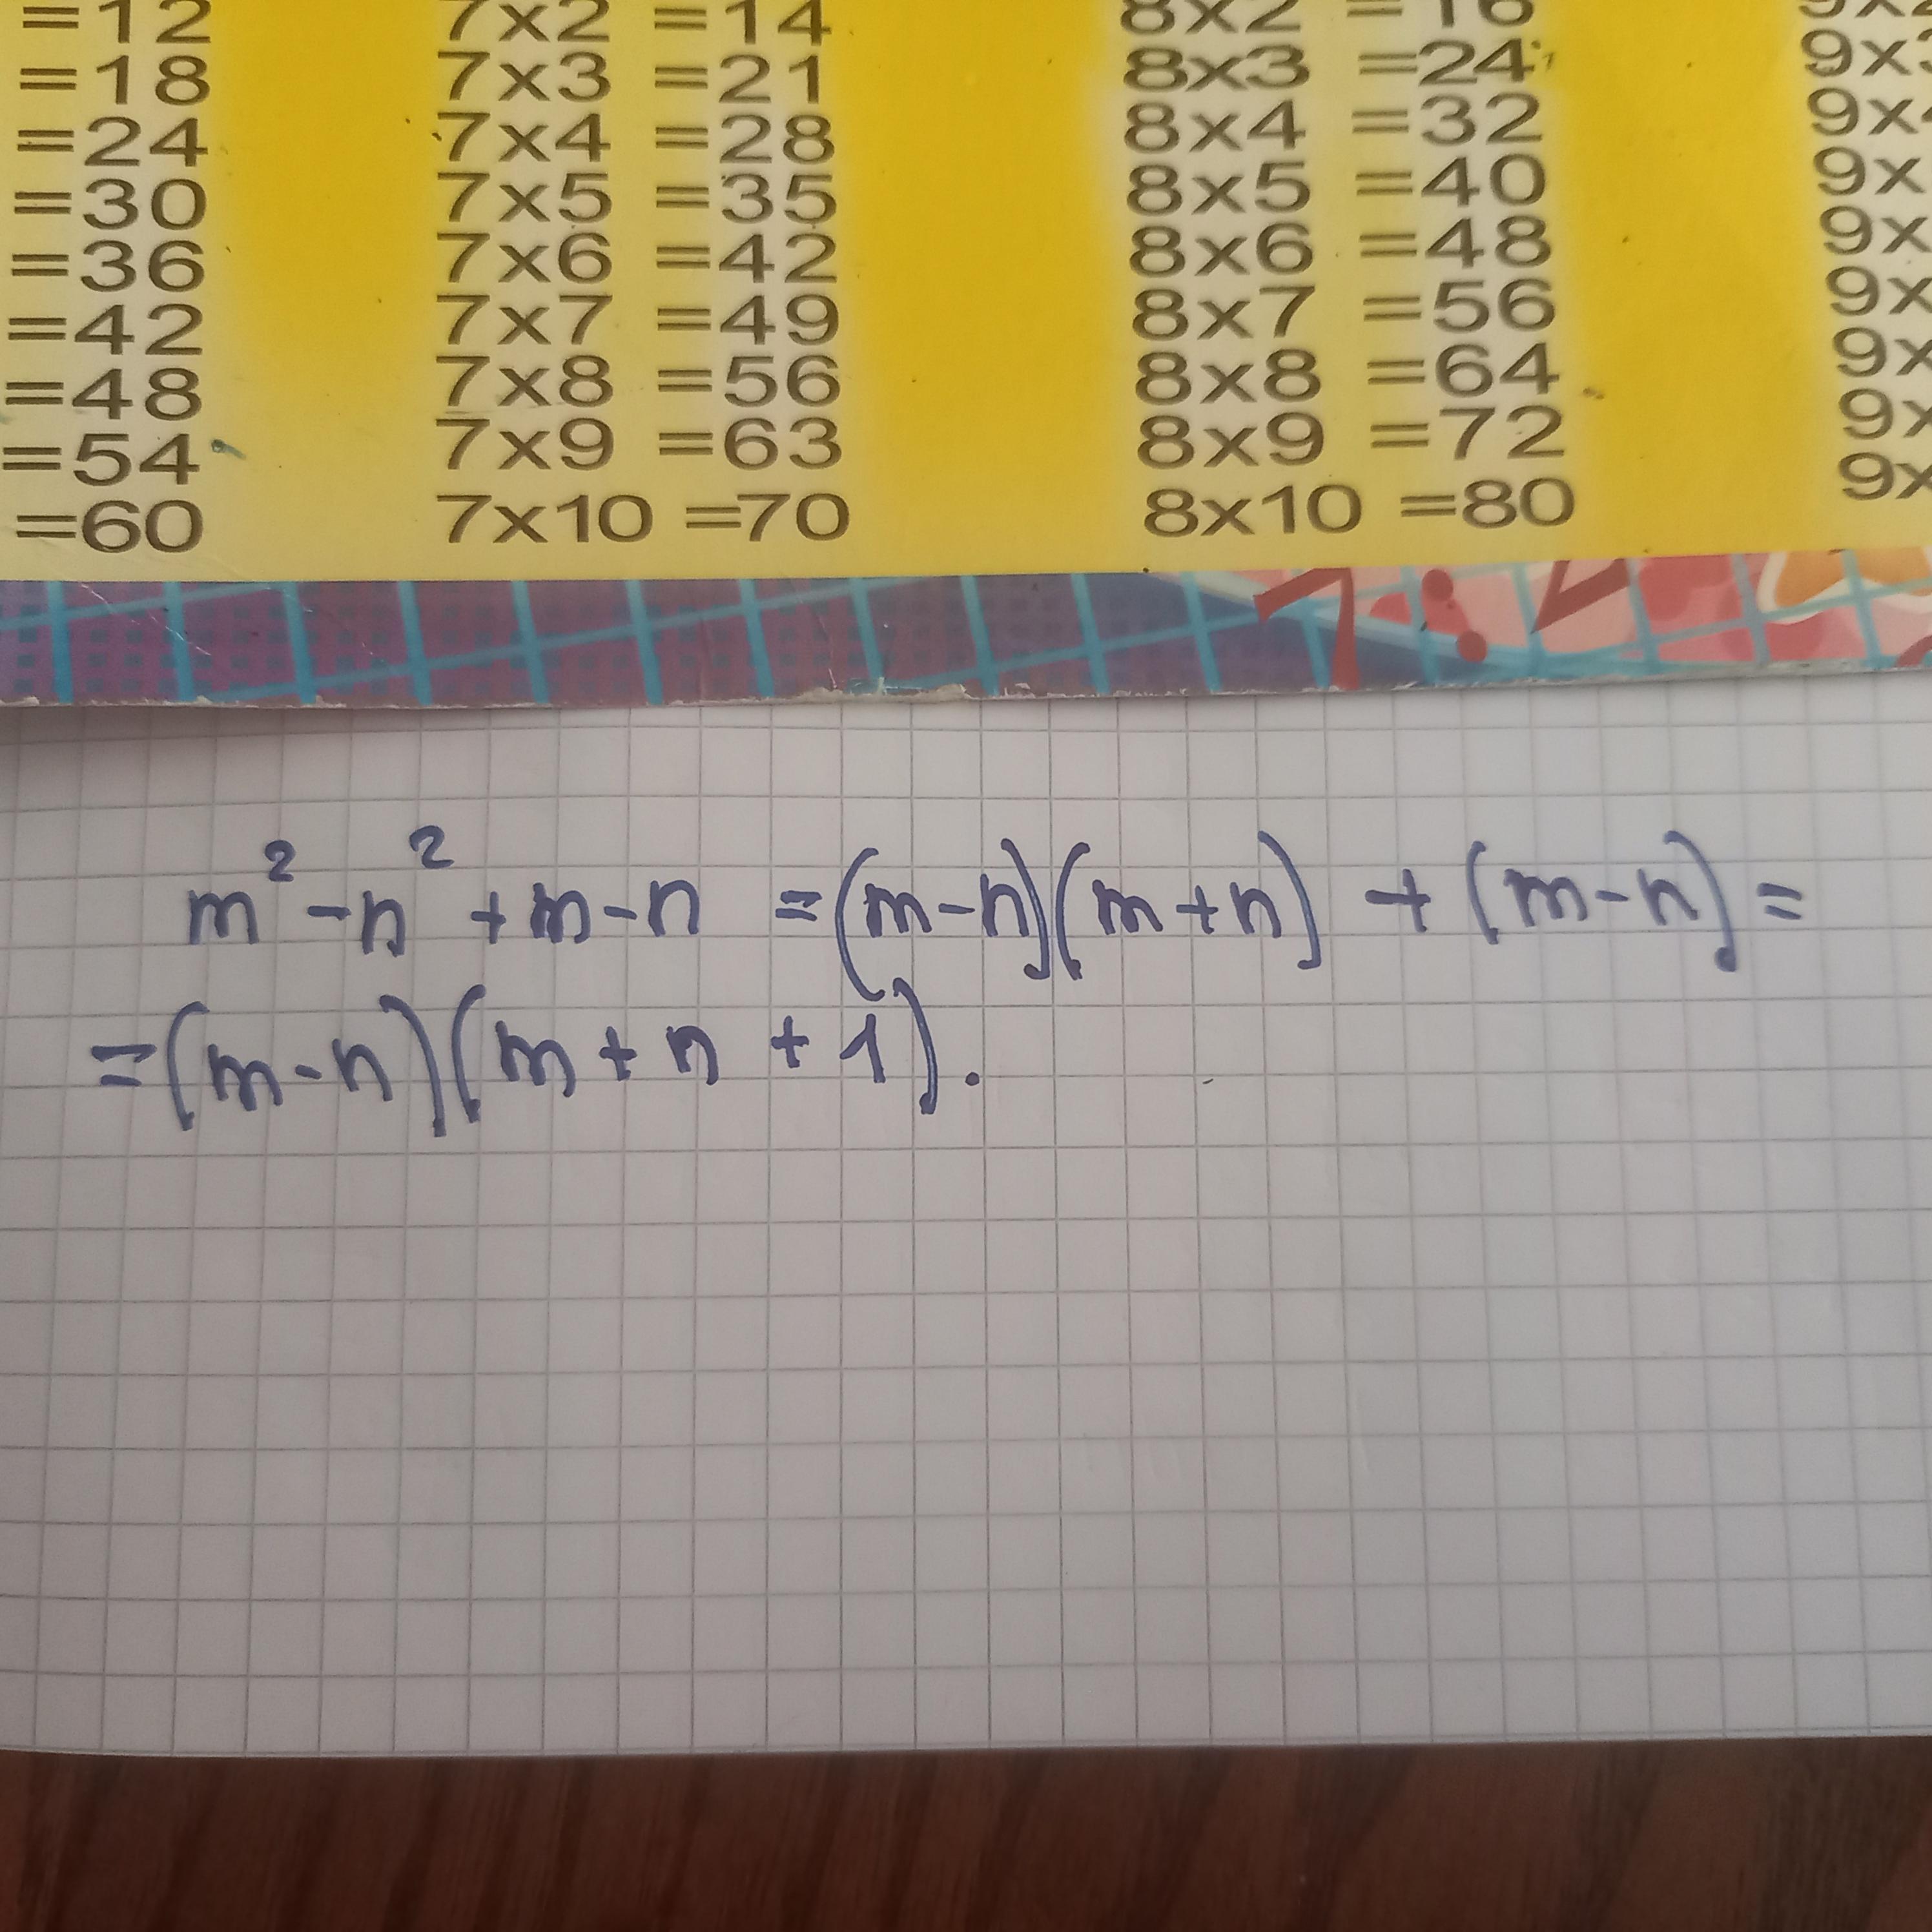 =12 7x2 =14 8x2 =16
=18 7x3 =21 8x3 =24 9x3
=24 7x4 =28 8x4 =32 9x4
=30 7x5 =35 8x5 =40 9x
=36 7x6 =42 8x6 =48 9x
=42 7x7 =49 8x7 =56 9x
=48 7x8 =56 8x8 =64 9x
=54 7x9 =63 8x9 =72 9x
=60 7x10 =70 8x10 =80 9x
m²-n²+m-n =(m-n)(m+n) +(m-n)=
=(m-n)(m+n+1).